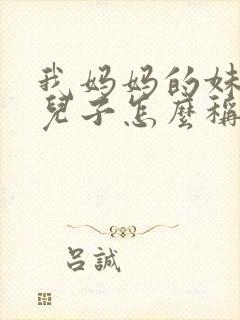 我妈妈的妹
兒子怎麼稱
吕誠